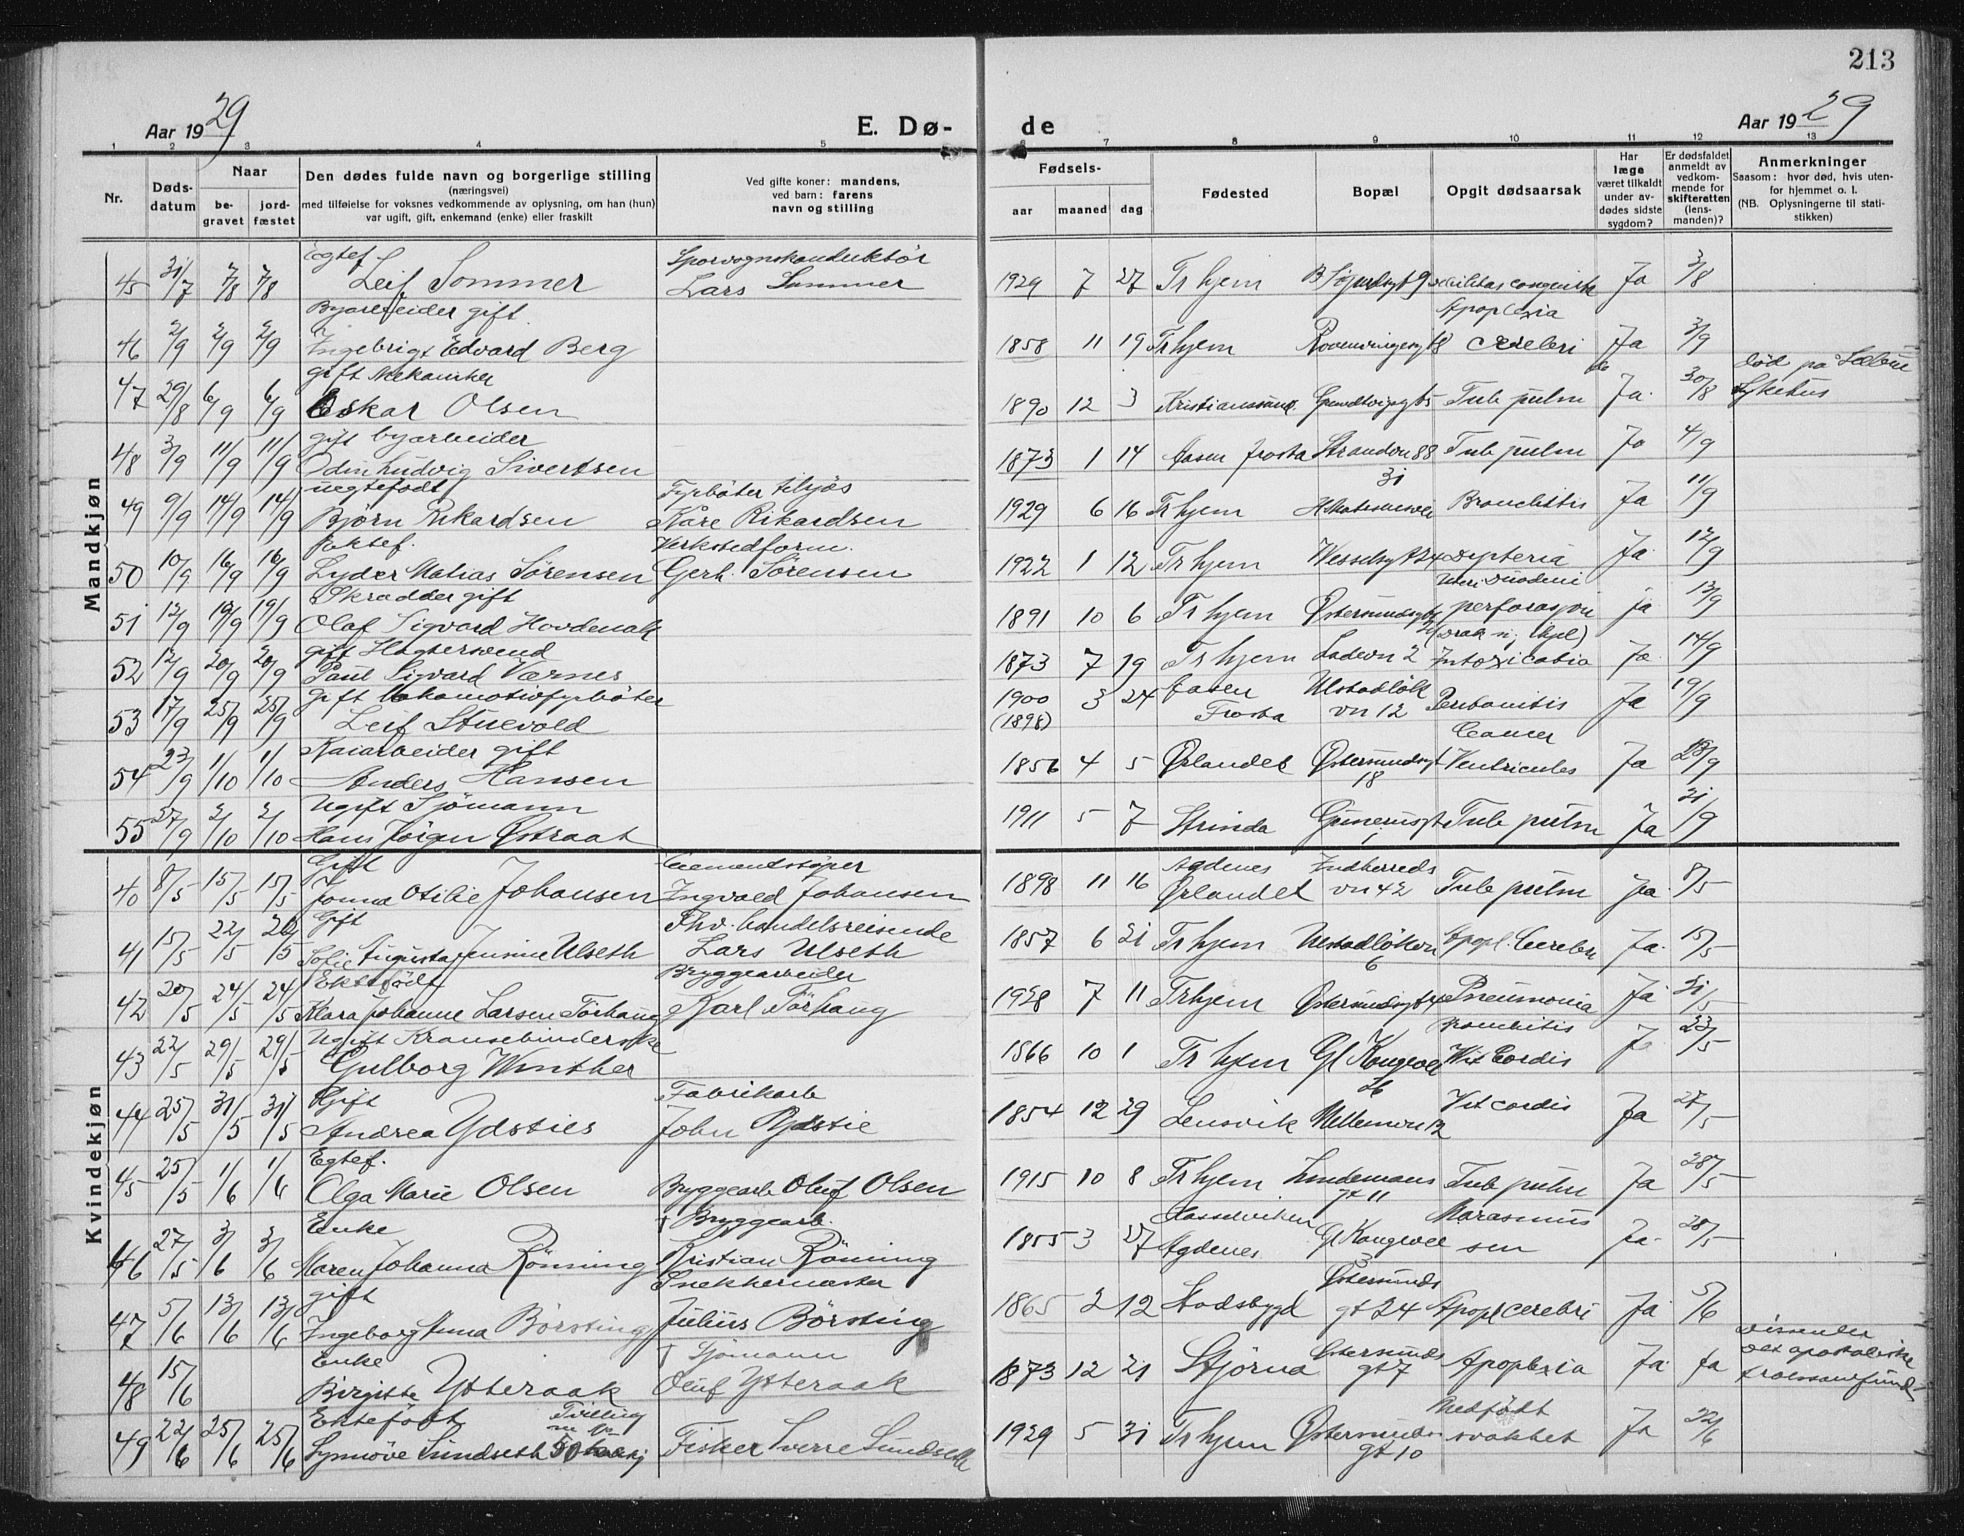 213
Aar 1929
E. Dø-
de
Aar 1929
1 2 3 4 5 6 7 8 9 10 11 12 13
Nr.
Døds-
datum
Naar
be-
gravet
jord-
fæstet
Den dødes fulde navn og borgerlige stilling
(næringsvei)
med tilføielse for voksnes vedkommende av oplysning, om han (hun)
var ugift, gift, enkemand (enke) eller fraskilt
Ved gifte koner: mandens,
ved barn: farens
navn og stilling
Fødsels-
aar
maaned
dag
Fødested
Bopæl
Opgit dødsaarsak
Har
læge
været tilkaldt
under av-
dødes sidste
sygdom?
Er dødsfaldet
anmeldt av
vedkom-
mende for
skifteretten
(lens-
manden)?
Anmerkninger
Saasom: hvor død, hvis uten-
for hjemmet o. l.
(NB. Oplysningerne til stati-
stikken)
Mandkjøn
Egtef. Sporvognskonduktør
45 31/7 7/8 7/8 Leif Sommer Lars Sommer 1929 7 27 Trhjem Ja 3/8
Byarbeider gift Apoplexia
46 2/9 2/9 2/9 Ingebrigt Edvard Berg 1858 11 19 Trhjem cerebri Ja 3/9
gift Mekaniker død på
47 29/8 6/9 6/9 Oskar Olsen 1890 12 3 Kristianssund Tub pulm Ja 30/8 Sykehus
gift byarbeider
48 3/9 11/9 11/9 Odin Ludvig Sivertsen 1873 1 14 Aasen Frosta Strandvn 88 Tub pulm Ja 4/9
uegtefødt Fyrbøter tilsjøs 31
49 9/9 14/9 14/9 Bjørn Rikardsen Kåre Rikardsen 1929 6 16 Trhjem Bronchitis Ja 11/9
Ektef. Verkstedform.
50 10/9 16/9 16/9 Lyder Matias Sørensen Gerh. Sørensen 1922 1 12 Trhjem Wesselsgt 24 Dipteria Ja 12/9
Skrædder gift Ulcus Duodeni
51 12/9 19/9 19/9 Olaf Sigvard Hovdenak 1891 10 6 Trhjem Østersundsgt perforasjon ja 13/9
gift
52 12/9 20/9 20/9 Paul Sigvard Værnes 1873 7 19 Trhjem Ladevn 2 Intoxicatio Ja 14/9
gift Lokomotivfyrbøter Aasen
53 17/9 25/9 25/9 Leif Stuevold 1900 (1898) 3 24 Frosta Ulstadløk vn 12 Peritonitis Ja 19/9
Kaiarbeider gift Cancer
54 23/9 1/10 1/10 Anders Hansen 1856 4 5 Ørlandet Østersundsgt 18 Ventriculus Ja
Ugift Sjømann
55 27/9 2/10 2/10 Hans Jørgen Østraat 1911 5 7 Strinda Tub pulm Ja
Kvindekjøn
Gift Cementstøper Agdenes Indherreds
40 8/5 15/5 15/5 Otilie Johansen Ingvald Johansen 1898 11 16 Ørlandet vn 42 Tub pulm Ja 8/5
Gift Fhv. handelsreisende
41 15/5 22/5 Sofie Augusta Jensine Ulseth Lars Ulseth 1857 6 21 Trhjem Ulstadløkvn 6 Apopl. Cerebri Ja 15/5
Ektefødt Bryggearbeider
42 20/5 24/5 24/5 Klara Johanne Larsen Tørhaug Karl Tørhaug 1928 7 11 Trhjem Østersundsgt Pneumonia Ja 21/5
Ugift Kransebinderske Bronchitis
43 22/5 29/5 29/5 Gulborg Winther 1866 10 1 Trhjem Gl Kongevei Vit Cordis J 23/5
Gift Fabrikarb
44 25/5 31/5 31/5 Andrea Ydsties John Ydstie 1854 12 29 Lensvik Mellemvn 12 Vit cordis Ja 27/5
Egtef.
45 25/5 1/6 1/6 Olga Marie Olsen Bryggearb Oluf Olsen 1915 10 8 Trhjem Lindemans gt 11 Tub pulm Ja 28/5
Enke † Bryggearb. Hasselviken Marasmus
46 27/5 3/6 3/6 Maren Johanna Rönning Kristian Rönning 1855 3 27 Agdenes Gl Kongevei sen Ja 28/5
gift Snekkermester Østersunds
47 5/6 13/6 13/6 Ingeborg Anna Børsting Julius Børsting 1865 2 12 Stadsbygd gt 24 Apopl cerebri Ja 5/6
Enke † Sjømann Østersunds Dissenter
48 15/6 Birgitte Ytteraak Oluf Ytteraak 1873 12 21 Stjørna gt 7 Apoplexia Ja Ja Det apostoliske
trossamfund
Ektefødt Tvilling Medfødt
49 22/6 25/6 25/6 Synnøve Sundseth Fisker Sverre Sundseth 1929 5 31 Trhjem Østersunds gt 10 svakhet Ja 22/6